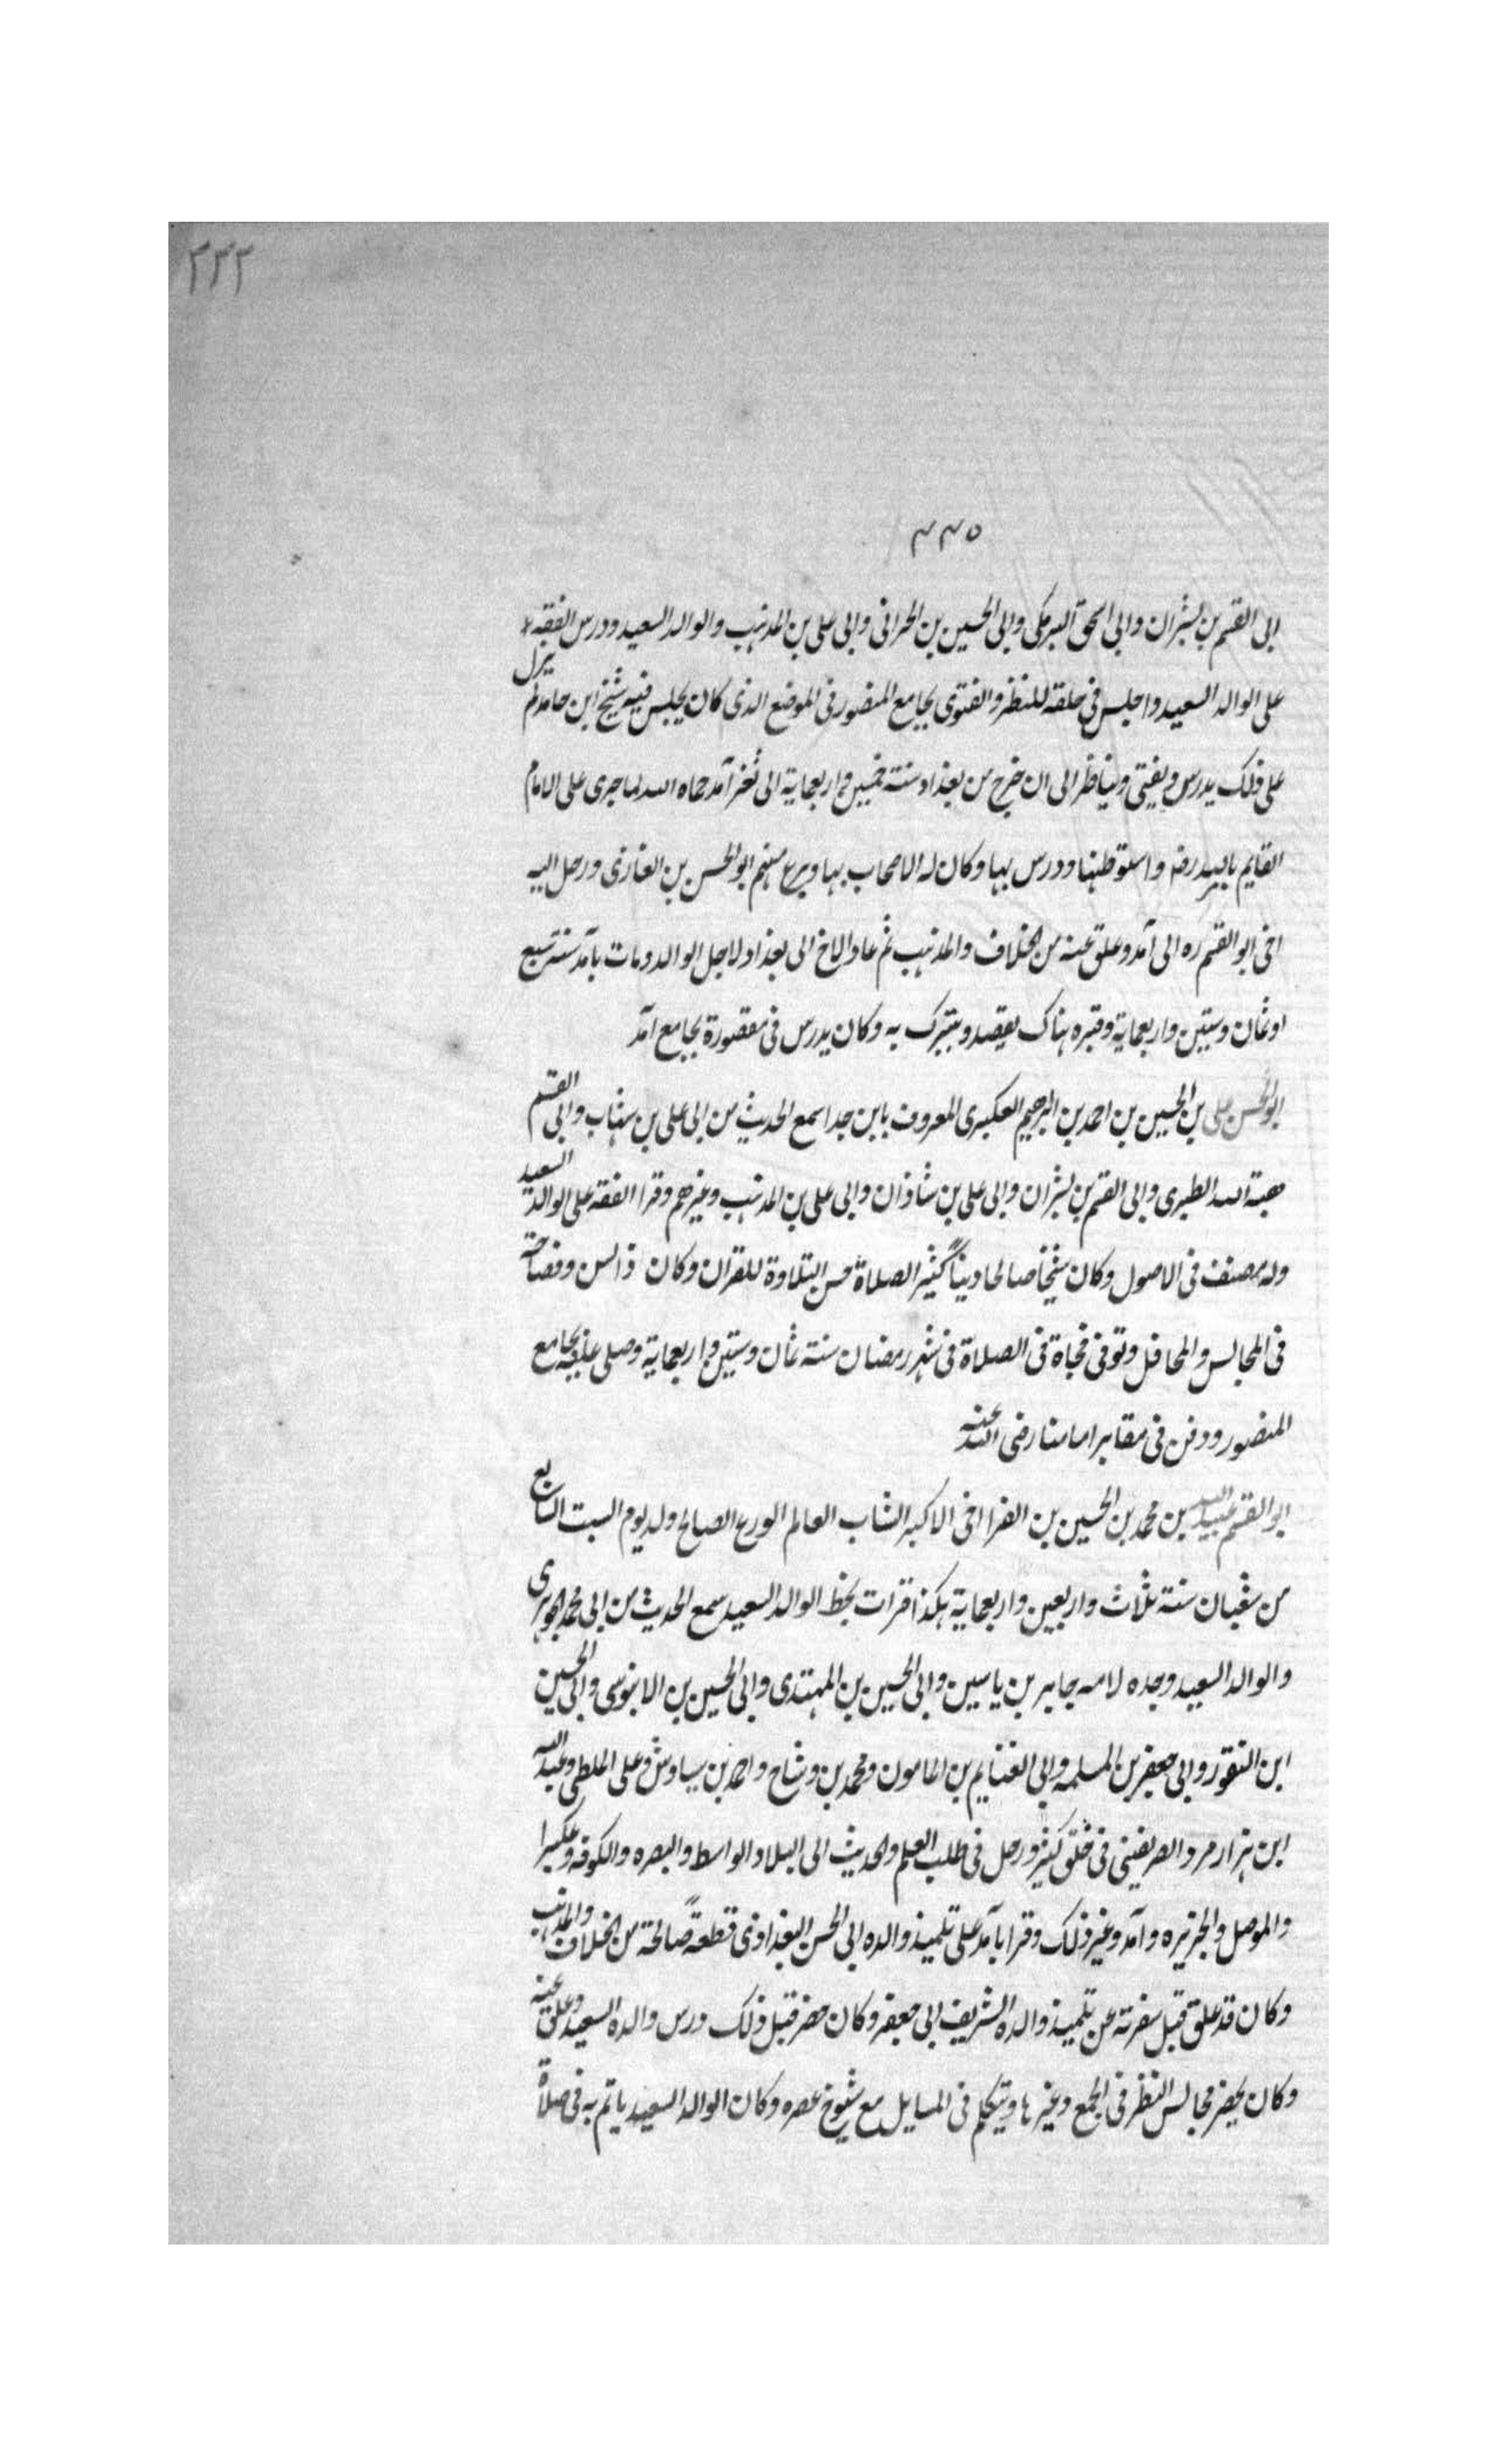 ٢٣٣
٣٣٥
ابى القسم بن بشران وابى اسحق البرمكى وابى الحسين بن الحرانى وابى على بن المذهب والوالد السعيد ودرس الفقه
على الوالد السعيد واجلس فى حلقة للنظر والفتوى بجامع المنصور فى الموضع الذى كان يجلس فيه شيخ ابن حامد لم يزل
على ذلك يدرس ويفتى ويناظر الى ان خرج من بغداد سنة خمسين واربعماية الى ثغر آمد حماه الله لما جرى على الامام
القايم بالله رضه واستوطنها ودرس بها وكان له الاصحاب بها وبرع منهم ابو الحسن بن الغازى ورحل اليه
اخى ابو القسم ره الى آمد وعلق عنه من الخلاف والمذهب ثم عاد الاخ الى بغداد لاجل الوالد ومات بآمد سنة سبع
او ثمان وستين واربعماية وقبره هناك يقصد ويتبرك به وكان يدرس فى مقصورة بجامع آمد
ابو الحسن على بن الحسين بن احمد بن ابرهيم العكبرى المعروف بابن جدا سمع الحديث من ابى على بن شهاب وابى القسم
هبة الله الطبرى وابى القسم بن بشران وابى على بن شاذان وابى على بن المذهب وغيرهم وقرا الفقه على الوالد السعيد
وله مصنف فى الاصول وكان شيخا صالحا دينا كثير الصلاة حسن التلاوة للقران وكان ذا لسن وفصاحة
فى المجالس والمحافل وتوفى فجاة فى الصلاة فى شهر رمضان سنة ثمان وستين واربعماية وصلى عليه بجامع
المنصور ودفن فى مقابر امامنا رضى الله عنه
ابو القسم عبيد الله بن محمد بن الحسين بن الفرا اخى الاكبر الشاب العالم الورع الصالح ولد يوم السبت السابع
من شعبان سنة ثلاث واربعين واربعماية هكذا قرات بخط الوالد السعيد سمع الحديث من ابى محمد الجوهرى
والوالد السعيد وجده لامه جابر بن ياسين وابى الحسين بن المهتدى وابى الحسين بن الابنوسى وابى الحسين
ابن النقور وابى جعفر بن المسلمه وابى الغنايم بن المامون ومحمد بن وشاح واحمد بن سياوش وعلى الملطى وعبد الله
ابن هزارمرد الصريفينى فى خلق كثير ورحل فى طلب العلم والحديث الى البلاد الواسط والبصره والكوفه وعكبرا
والموصل والجزيره وآمد وغير ذلك وقرا بآمد على تلميذ والده ابى الحسن البغدادى قطعةً صالحة من الخلاف والمذهب
وكان قد علق قبل سفرته عن تلميذ والده الشريف ابى جعفر وكان حضر قبل ذلك درس والده السعيد وعلق عنه
وكان يحضر مجالس النظر فى الجمع وغيرها ويتكلم فى المسايل مع شيوخ عصره وكان الوالد السعيد ياتم به فى صلاة